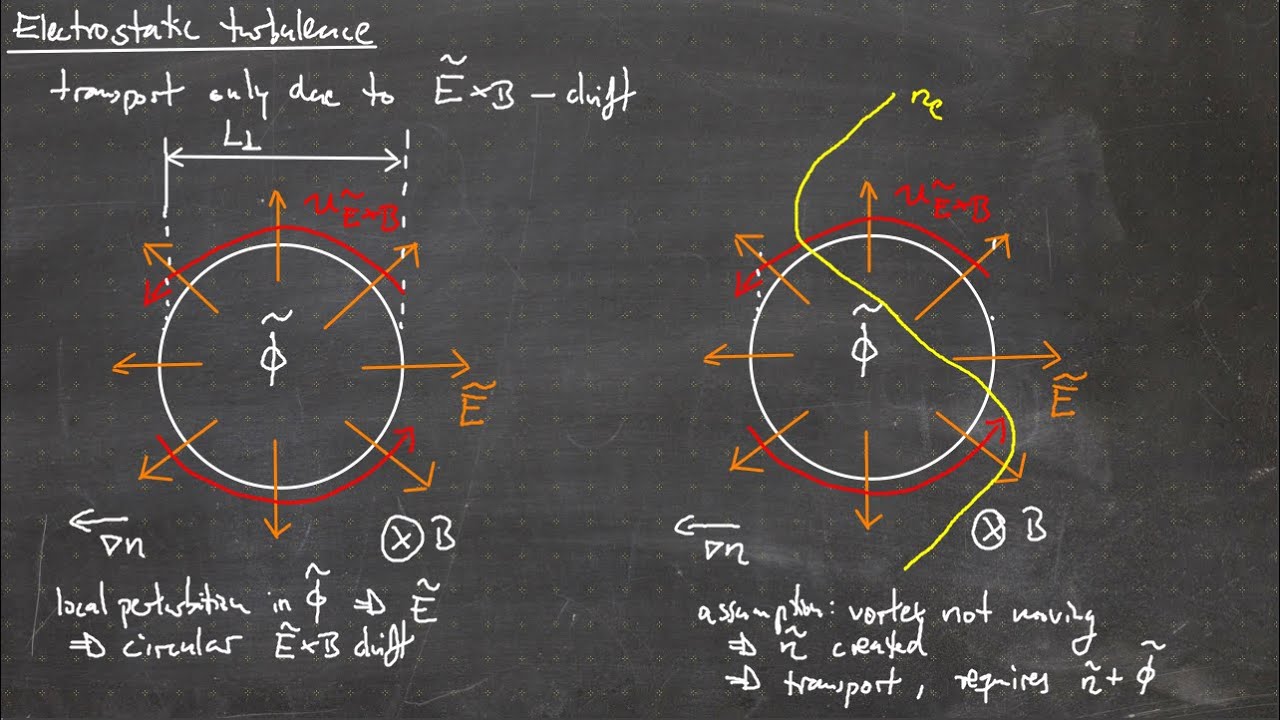 Electrostatic turbulence
transport only due to Ẽ×B - drift
L⊥
u Ẽ×B
ϕ̃
Ẽ
∇n
⊗ B
local perturbtion in ϕ̃ ⇒ Ẽ
⇒ circular Ẽ×B drift
n_e
u Ẽ×B
ϕ̃
Ẽ
∇n
⊗ B
assumption: vortex not moving
⇒ ñ created
⇒ transport, requires ñ + ϕ̃